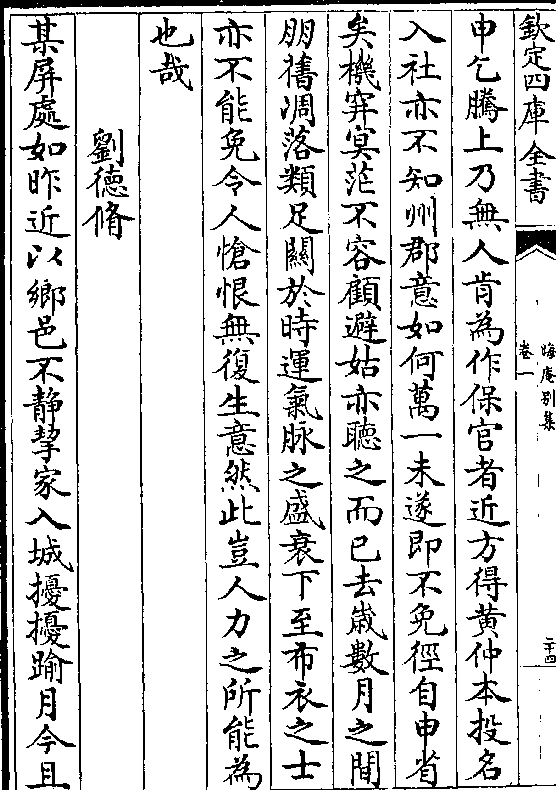 欽定四庫全書
晦庵别集
卷一
二十四
申乞騰上乃無人肯為作保官者近方得黄仲本投名
入社亦不知州郡意如何萬一未遂即不免徑自申省
矣機穽冥茫不容顧避姑亦聽之而已去歲數月之間
朋舊凋落類足關於時運氣脉之盛衰下至布衣之士
亦不能免令人愴恨無復生意然此豈人力之所能為
也哉
劉德脩
某屏處如昨近以鄉邑不静挈家入城擾擾踰月今且